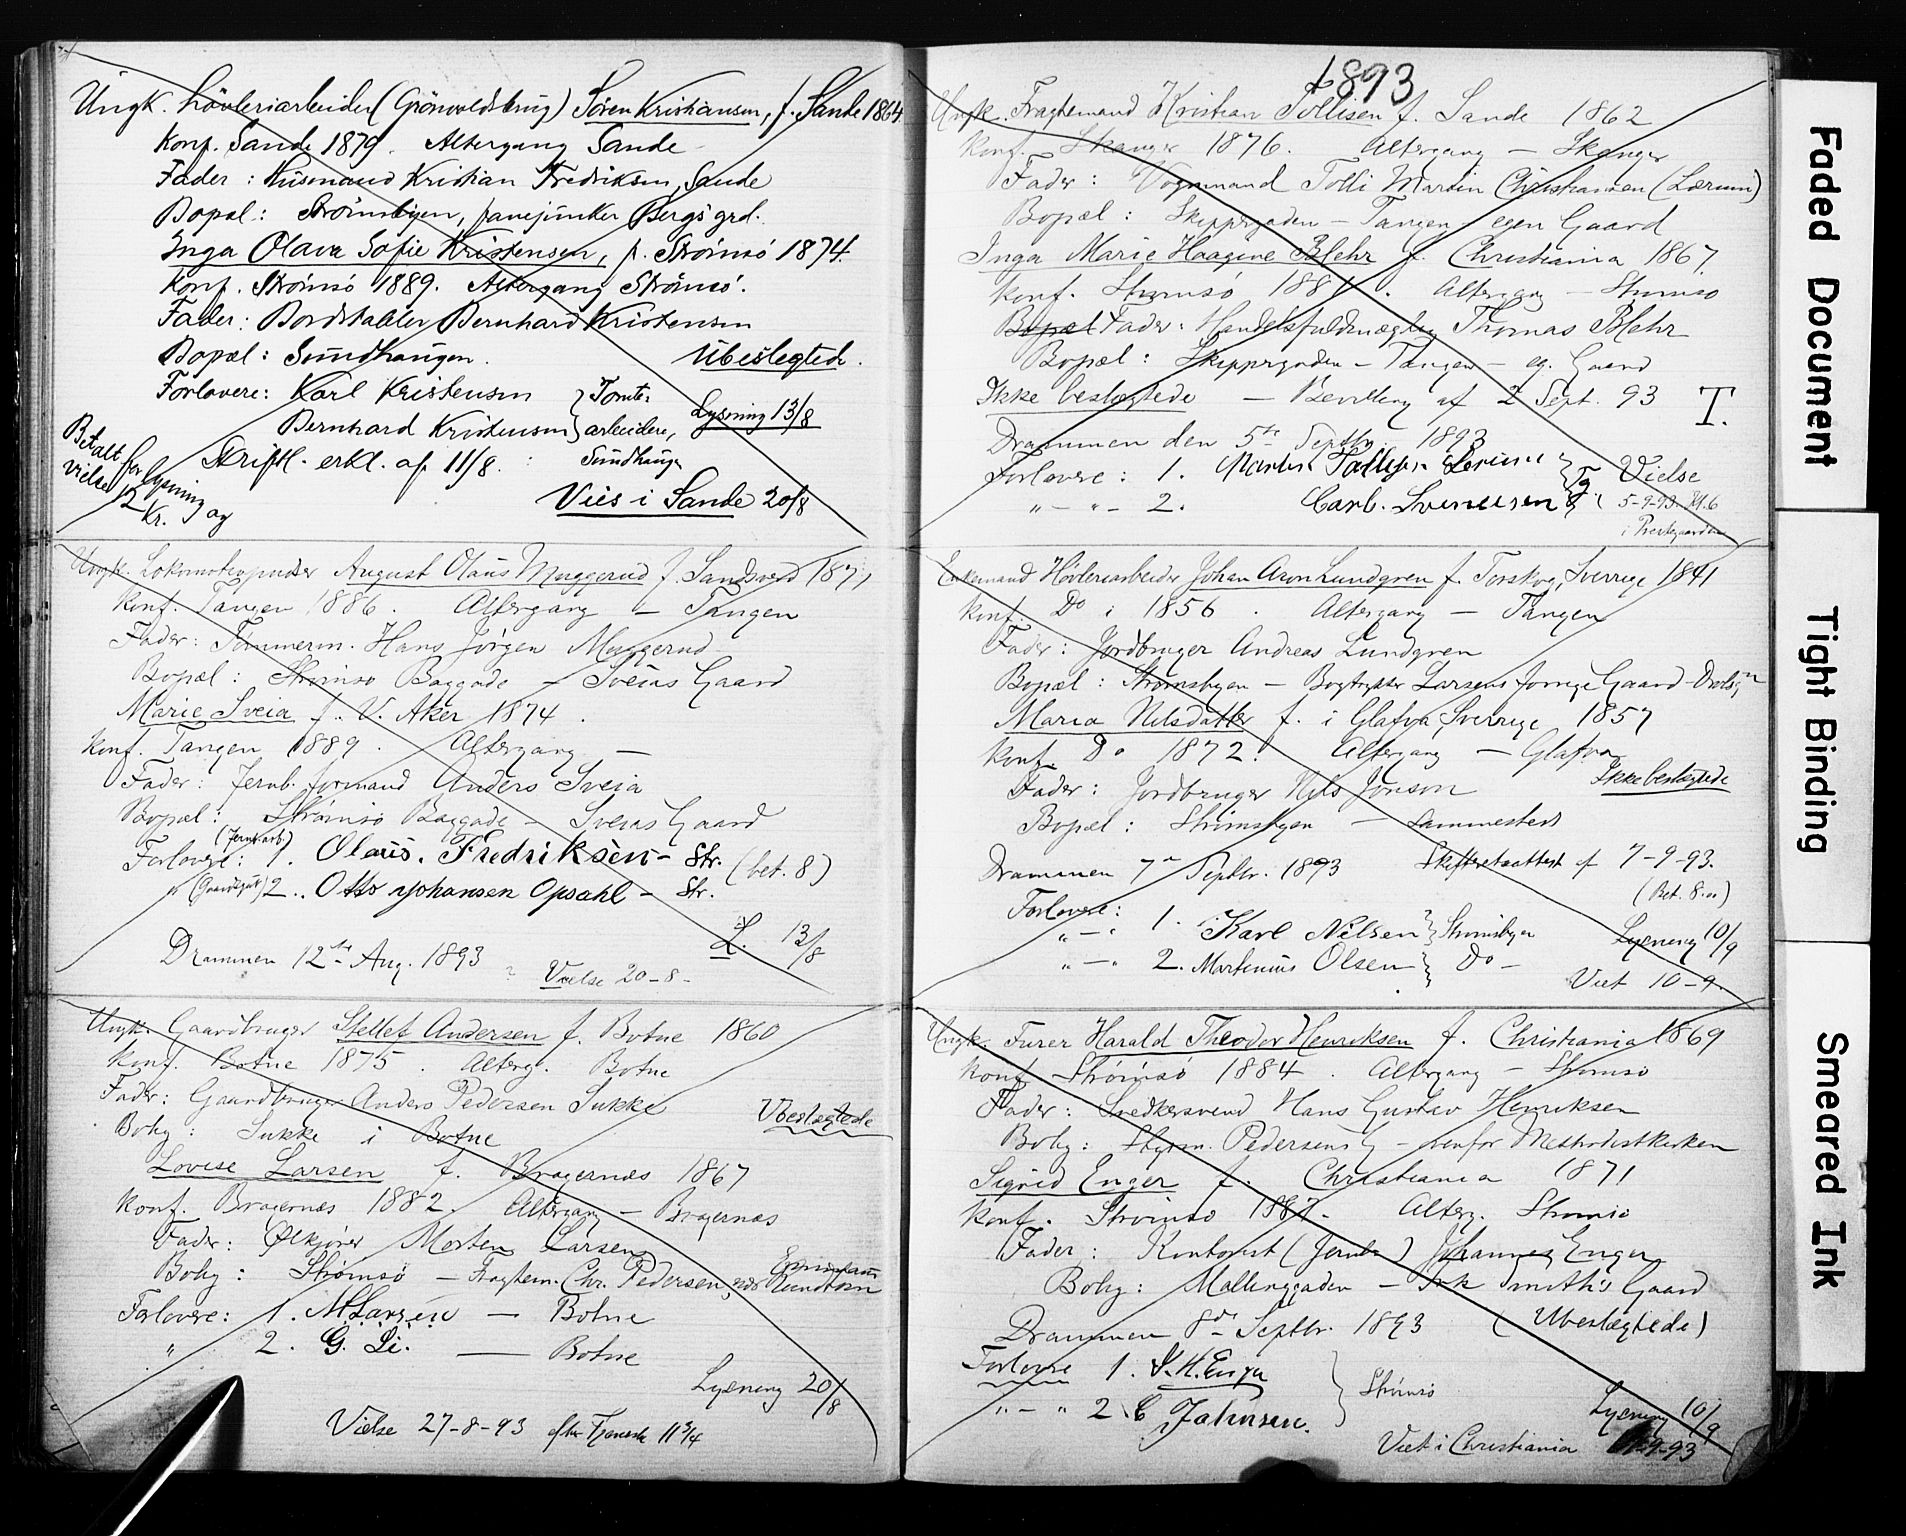 Ungk. Høvleriarbeider (Grönvoldsbrug) Søren Kristiansen, f. Sande 1864.
Konf. Sande 1879. Altergang Sande
Fader: Husmand Kristian Fredriksen, Sande
Bopæl: Strömsbyen, fanejunker Bergs grd.
Inga Olava Sofie Kristensen, f. Strömsö 1874.
Konf. Strömsö 1889. Altergang Strömsö.
Fader: Bordstabler Bernhard Kristensen
Bopæl: Sundhaugen. Ubeslegtede.
Forlovere: Karl Kristensen } Tomte-
Bernhard Kristensen } arbeidere, Lysning 13/8
Skriftl. erkl. af 11/8. Sundhaugen
Betalt for lysning og
vielse 12 Kr.
Vies i Sande 20/8
Ungk. Lokomotivpudser August Olaus Muggerud f. Sandsverd 1871
Konf. Tangen 1886. Altergang — Tangen
Fader: Tømmerm. Hans Jørgen Muggerud
Bopæl: Strømsø Baggade — Sveias Gaard
Marie Sveia f. V. Aker 1874.
Konf. Tangen 1889. Altergang —
Fader: Jernb. formand Anders Sveia
Bopæl: Strømsø Baggade — Sveias Gaard
(Jernb.arb.)
Forlovere: 1. Olaus. Fredriksen — Str. (bet. 8)
2. Otto Johansen Opsahl — Str.
L. 13/8
Drammen 12te Aug. 1893
Vielse 20-8-
Ungk. Gaardbruger Andersen f. Botne 1860
Konf. Botne 1875. Alterg. Botne
Fader: Gaardbruger Anders Pedersen Sukke
Ubeslægtede
Bolig: Sukke i Botne
Lovise Larsen f. Bragernæs 1867
Konf. Bragernæs 1882. Altergang — Bragernæs
Fader: Ølkjører Morten Larsen
Bolig: Strømsø — Fragtem. Chr. Pedersen, nær Rundtom
Forlovere: 1. M. Larsen — Botne
" 2. G. Li. — Botne
Lysning 20/8
Vielse 27-8-93 efter Tjeneste 11 3/4
1893
Ungk. Fragtemand Kristian Tollisen f. Sande 1862
Konf. Skoger 1876. Altergang — Skoger
Fader: Vognmand Tolli Martin Christiansen (Lerum)
Bopæl: Skippergaden — Tangen — egen Gaard
Inga Marie Haagine Blehr f. Christiania 1867.
Konf. Strømsø 188. Altergang — Strømsø
Bopæl Fader: Handelsfuldmægtig Thomas Blehr
Bopæl: Skippergaden — Tangen — eg. Gaard
Ikke beslægtede — Bevilling af 2 Sept. 93 T.
Drammen den 5te Septbr. 1893
Forlovere: 1. Martin Tollefsen Lerum } Tg. Vielse
" — " — 2. Carl. Svendsen } 5-9-93. Kl. 6
i Prestegaarden
Enkemand Høvleriarbeider Johan Aron Lundgren f. Torskog, Sverrige 1841
Konf. Do i 1856. Altergang — Tangen
Fader: Jordbruger Andreas Lundgren
Bopæl: Strømsbyen — Bogtrykker Larsens forrige Gaard
Maria Nilsdatter f. i Glafva, Sverrige, 1857
Konf. Do 1872. Altergang — Glafva
Ikke beslægtede
Fader: Jordbruger Nils Jonson
Bopæl: Strømsbyen — Sammesteds
Drammen 7de Septbr. 1893 Skifteretsattest af 7-9-93.
(Bet. 8.00)
Forlovere: 1. Karl Nilsen } Strømsbyen
Lysning 10/9
" — " 2. Martinius Olsen } Do —
Viet 10-9.
Ungk. Furer Harald Theodor Henriksen f. Christiania 1869
Konf. Strømsø 1884. Altergang — Strømsø
Fader: Snedkersvend Hans Gustav Henriksen
Bolig: Styrm. Pedersens G — ovenfor Methodistkirken
Sigrid Enger f. Christiania 1871
Konf. Strømsø 1887. Alterg. Strømsø
Fader: Kontorist (Jernb.) Johannes Enger
Bolig: Mallinggaden — Smith's Gaard
Drammen 8de Septbr. 1893 (Ubeslægtede)
Forlovere 1. J. H. Enger } Strømsø
" — " 2. C. Johnsen. }
Lysning 10/9
Viet i Christiania -9-93